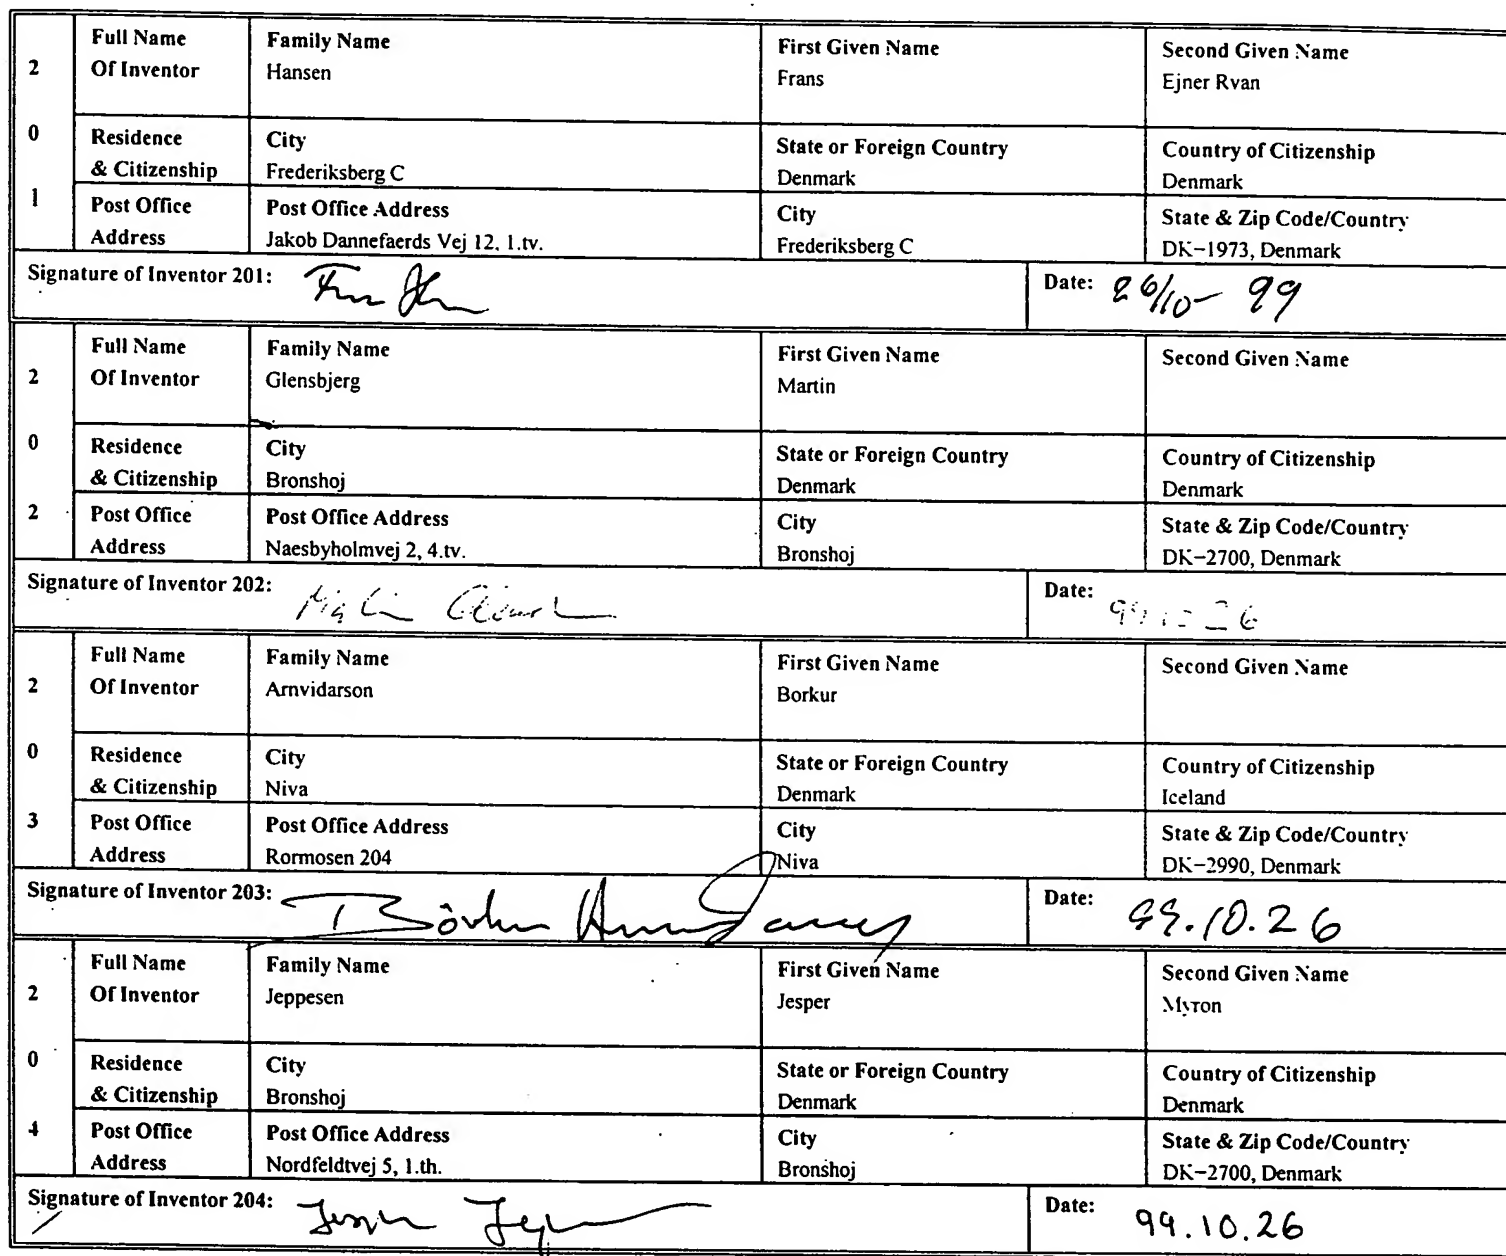 2 0 1
Full Name Of Inventor
Family Name
Hansen
First Given Name
Frans
Second Given Name
Ejner Rvan
Residence & Citizenship
City
Frederiksberg C
State or Foreign Country
Denmark
Country of Citizenship
Denmark
Post Office Address
Post Office Address
Jakob Dannefaerds Vej 12, 1.tv.
City
Frederiksberg C
State & Zip Code/Country
DK-1973, Denmark
Signature of Inventor 201:
Date: 26/10- 99
2 0 2
Full Name Of Inventor
Family Name
Glensbjerg
First Given Name
Martin
Second Given Name
Residence & Citizenship
City
Bronshoj
State or Foreign Country
Denmark
Country of Citizenship
Denmark
Post Office Address
Post Office Address
Naesbyholmvej 2, 4.tv.
City
Bronshoj
State & Zip Code/Country
DK-2700, Denmark
Signature of Inventor 202:
Date: 99 10 26
2 0 3
Full Name Of Inventor
Family Name
Arnvidarson
First Given Name
Borkur
Second Given Name
Residence & Citizenship
City
Niva
State or Foreign Country
Denmark
Country of Citizenship
Iceland
Post Office Address
Post Office Address
Rormosen 204
City
Niva
State & Zip Code/Country
DK-2990, Denmark
Signature of Inventor 203:
Date: 99.10.26
2 0 4
Full Name Of Inventor
Family Name
Jeppesen
First Given Name
Jesper
Second Given Name
Myron
Residence & Citizenship
City
Bronshoj
State or Foreign Country
Denmark
Country of Citizenship
Denmark
Post Office Address
Post Office Address
Nordfeldtvej 5, 1.th.
City
Bronshoj
State & Zip Code/Country
DK-2700, Denmark
Signature of Inventor 204:
Date: 99.10.26